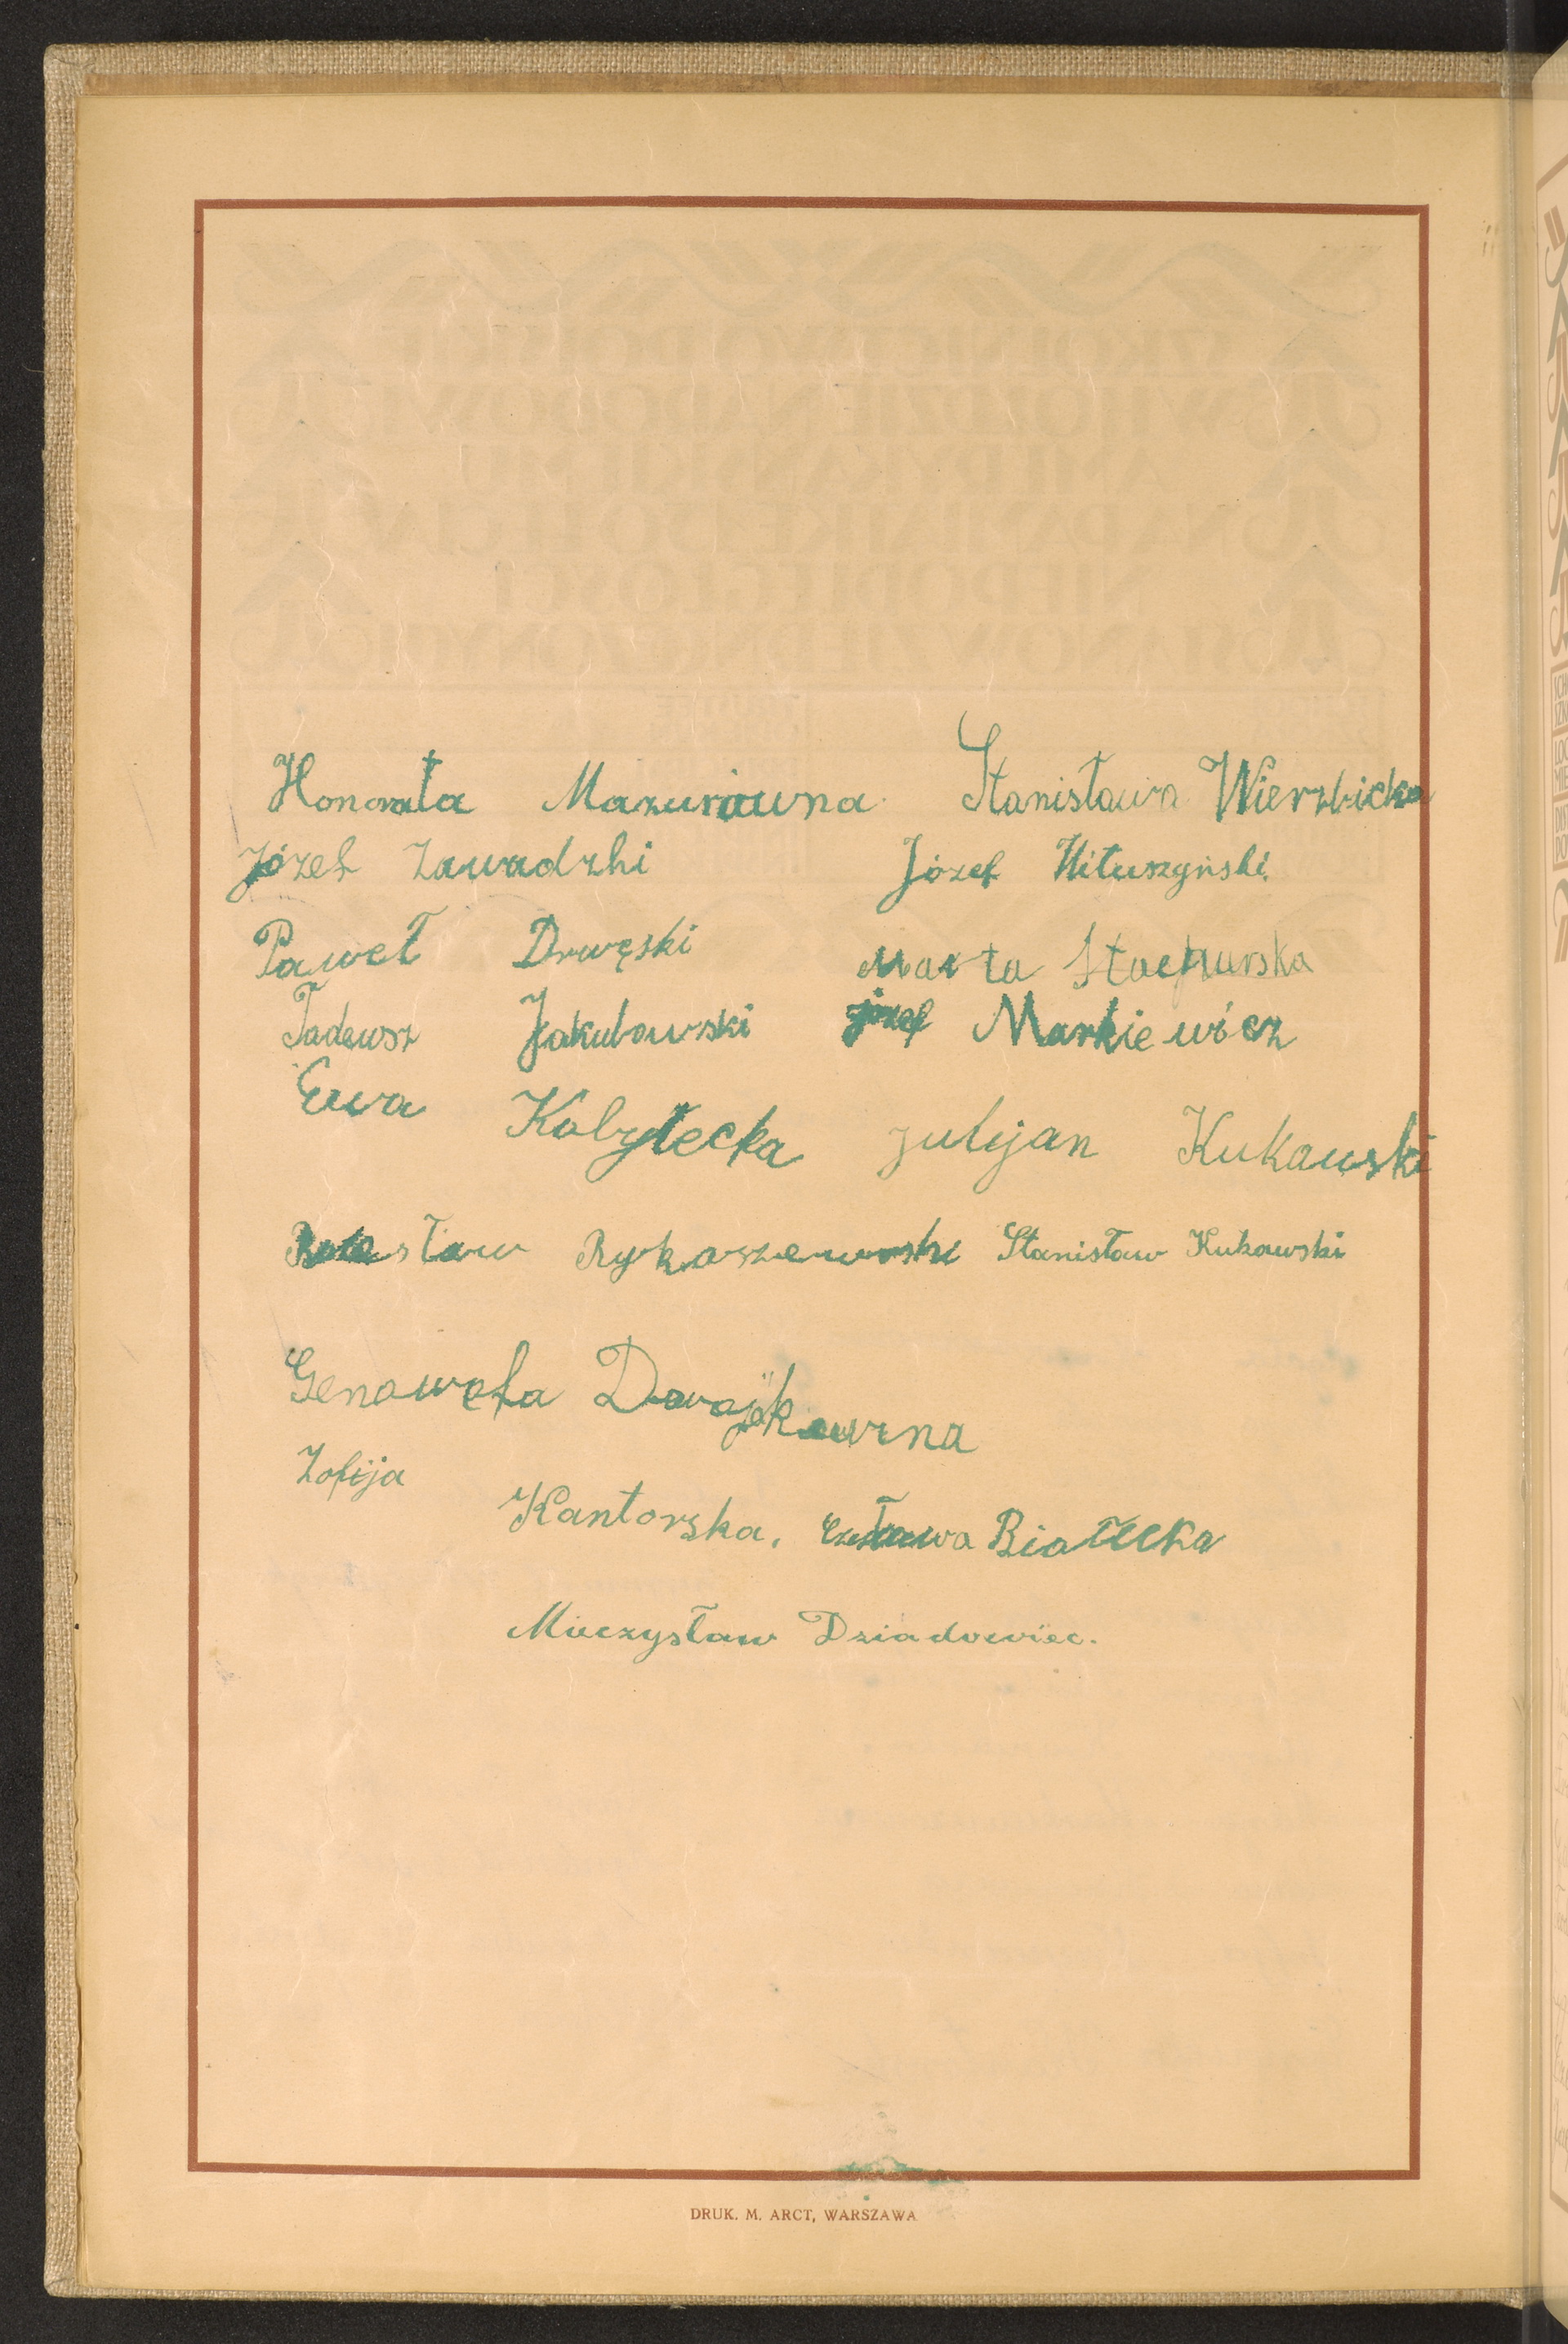 Honorata Mazurówna Stanisława Wierzbicka
Józef Zawadzki Józef Hituszyński
Paweł Drwęski Marta Stachurska
Tadeusz Jakubowski józef Markiewicz
Ewa Kobyłecka julijan Kukawski
Bolesław Rykaszewski Stanisław Kukawski
Genowefa
Zofija
Kantorska, Czesława Białecka
Mieczysław Dziadowiec.
DRUK. M. ARCT, WARSZAWA